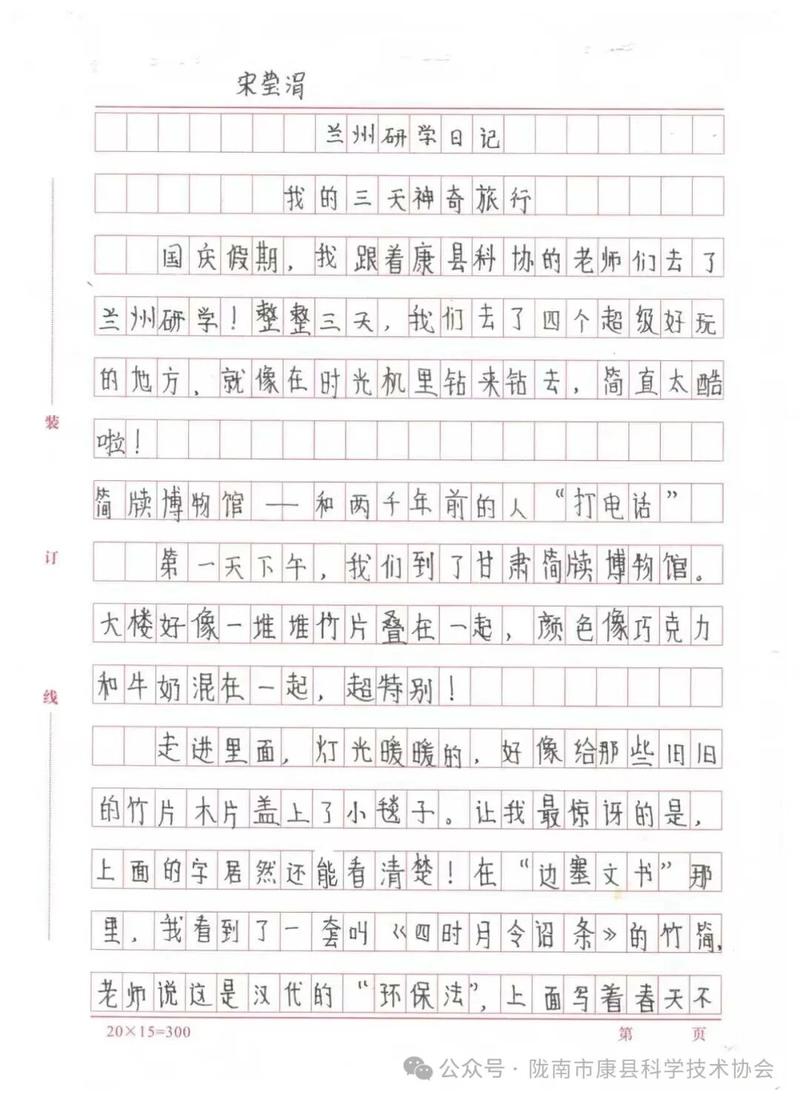 宋莹涓
兰州研学日记
我的三天神奇旅行
国庆假期，我跟着康县科协的老师们去了
兰州研学！整整三天，我们去了四个超级好玩
的地方，就像在时光机里钻来钻去，简直太酷
啦！
简牍博物馆——和两千年前的人“打电话”
第一天下午，我们到了甘肃简牍博物馆。
大楼好像一堆堆竹片叠在一起，颜色像巧克力
和牛奶混在一起，超特别！
走进里面，灯光暖暖的，好像给那些旧旧
的竹片木片盖上了小毯子。让我最惊讶的是，
上面的字居然还能看清楚！在“边塞文书”那
里，我看到了一套叫《四时月令诏条》的竹简，
老师说这是汉代的“环保法”，上面写着春天不
装
订
线
20×15=300
第 页
公众号·陇南市康县科学技术协会